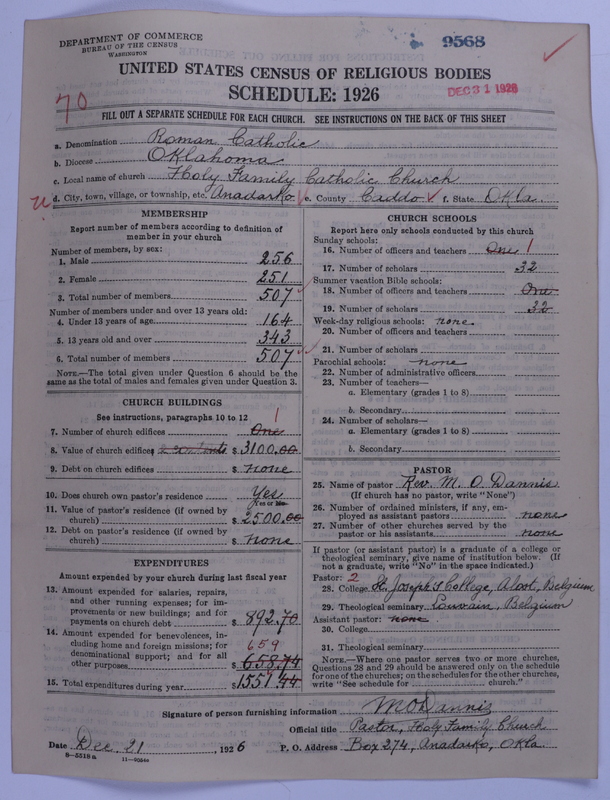 DEPARTMENT OF COMMERCE
BUREAU OF THE CENSUS
WASHINGTON
9568
UNITED STATES CENSUS OF RELIGIOUS BODIES
SCHEDULE: 1926
DEC 31 1926
70
FILL OUT A SEPARATE SCHEDULE FOR EACH CHURCH. SEE INSTRUCTIONS ON THE BACK OF THIS SHEET
a. Denomination Roman Catholic
b. Diocese Oklahoma
c. Local name of church Holy Family Catholic Church
d. City, town, village, or township, etc. Anadarko e. County Caddo f. State Okla.
MEMBERSHIP
Report number of members according to definition of member in your church
Number of members, by sex:
1. Male 256
2. Female 251
3. Total number of members 507
Number of members under and over 13 years old:
4. Under 13 years of age 164
5. 13 years old and over 343
6. Total number of members 507
NOTE.—The total given under Question 6 should be the
same as the total of males and females given under Question 3.
CHURCH BUILDINGS
See instructions, paragraphs 10 to 12
7. Number of church edifices One 1
8. Value of church edifices $ 3100.00
9. Debt on church edifices $ none
10. Does church own pastor's residence Yes
Yes or No
11. Value of pastor's residence (if owned by
church) $ 2500.00
12. Debt on pastor's residence (if owned by
church) $ none
EXPENDITURES
Amount expended by your church during last fiscal year
13. Amount expended for salaries, repairs,
and other running expenses; for im-
provements or new buildings; and for
payments on church debt $ 892.70
14. Amount expended for benevolences, in-
cluding home and foreign missions; for
denominational support; and for all
other purposes $ 658.74 659
15. Total expenditures during year $ 1551.44
CHURCH SCHOOLS
Report here only schools conducted by this church
Sunday schools:
16. Number of officers and teachers One 1
17. Number of scholars 32
Summer vacation Bible schools:
18. Number of officers and teachers One
19. Number of scholars 32
Week-day religious schools: none
20. Number of officers and teachers
21. Number of scholars
Parochial schools: none
22. Number of administrative officers
23. Number of teachers—
a. Elementary (grades 1 to 8)
b. Secondary
24. Number of scholars—
a. Elementary (grades 1 to 8)
b. Secondary
PASTOR
25. Name of pastor Rev. M. O. Dannis
(If church has no pastor, write "None")
26. Number of ordained ministers, if any, em-
ployed as assistant pastors none
27. Number of other churches served by the
pastor or his assistants none
If pastor (or assistant pastor) is a graduate of a college or
theological seminary, give name of institution below. (If
not a graduate, write "No" in the space indicated.)
Pastor: 2
28. College St. Joseph's College, Alost, Belgium
29. Theological seminary Louvain, Belgium
Assistant pastor: none
30. College
31. Theological seminary
NOTE.—Where one pastor serves two or more churches,
Questions 28 and 29 should be answered only on the schedule
for one of the churches; on the schedules for the other churches,
write "See schedule for church."
Signature of person furnishing information M O Dannis
Official title Pastor, Holy Family Church
Date Dec. 21, 1926 P. O. Address Box 274, Anadarko, Okla.
8—5518a 11—9054a